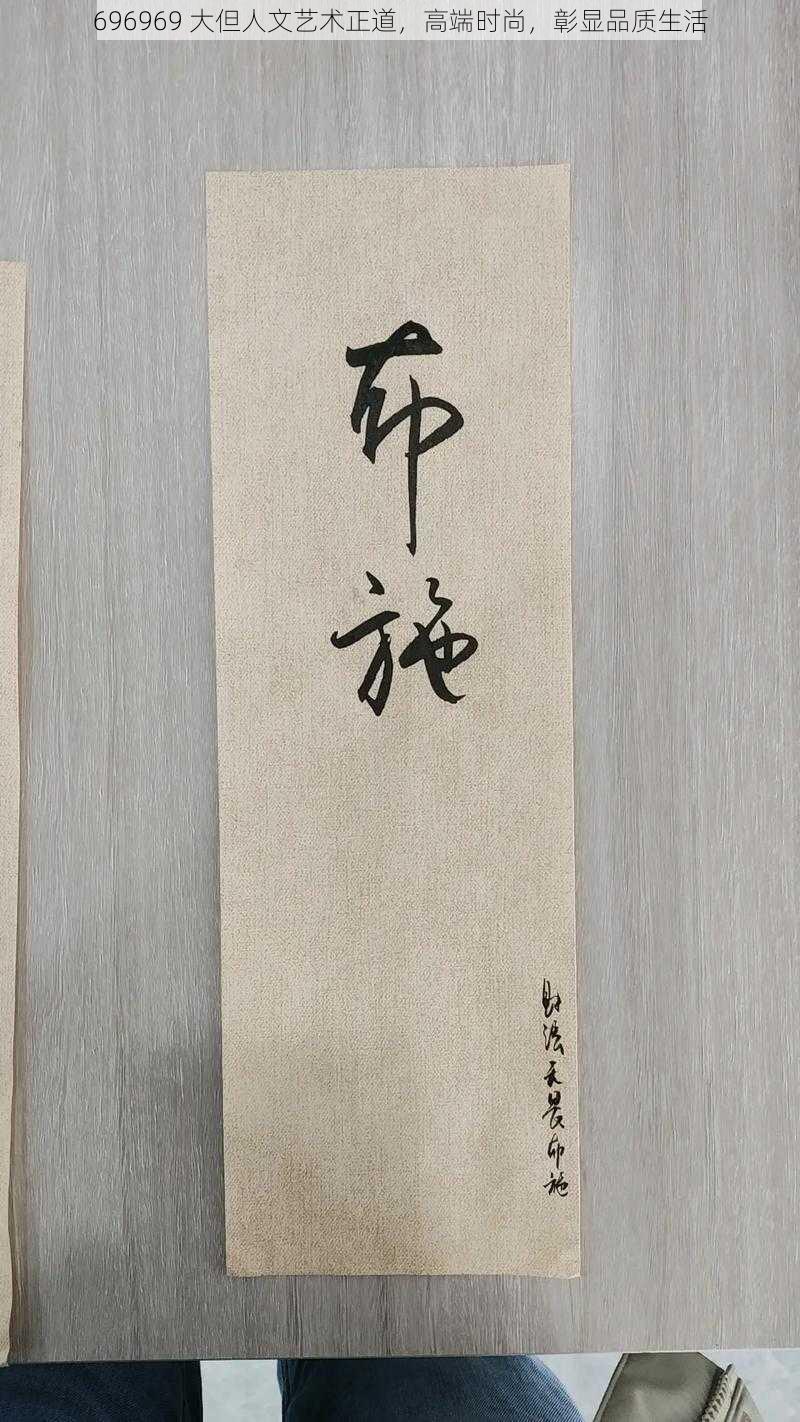 696969 大但人文艺术正道，高端时尚，彰显品质生活
布施
财法无畏布施